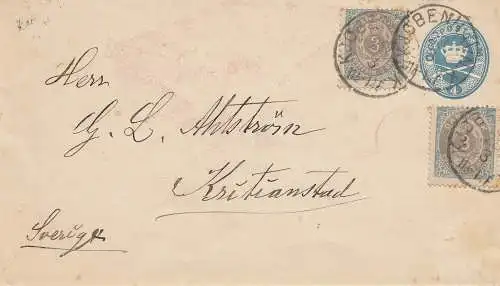 3
KJØBENH
4
3
Herr
G. L. Ahlström
Kritianstad
Sverige